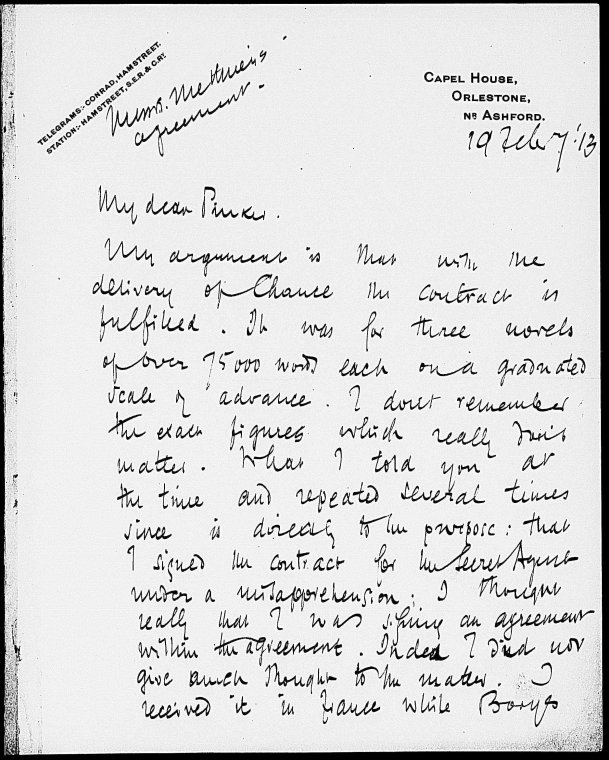 TELEGRAMS:- CONRAD, HAMSTREET.
STATION:- HAMSTREET, S.E.R. & C.RY.
Messrs. Methuen's
agreement -
CAPEL HOUSE,
ORLESTONE,
NR ASHFORD.
19 Febry '13
My dear Pinker.
My argument is that with the
delivery of Chance the contract is
fulfilled. It was for three novels
of over 75000 words each on a graduated
scale of advance. I don't remember
the exact figures which really don't
matter. What I told you at
the time and repeated several times
since is directly to the purpose: that
I signed the contract for the Secret Agent
under a misapprehension; I thought
really that I was signing an agreement
within the agreement. Indeed I did not
give much thought to the matter. I
received it in France while Borys